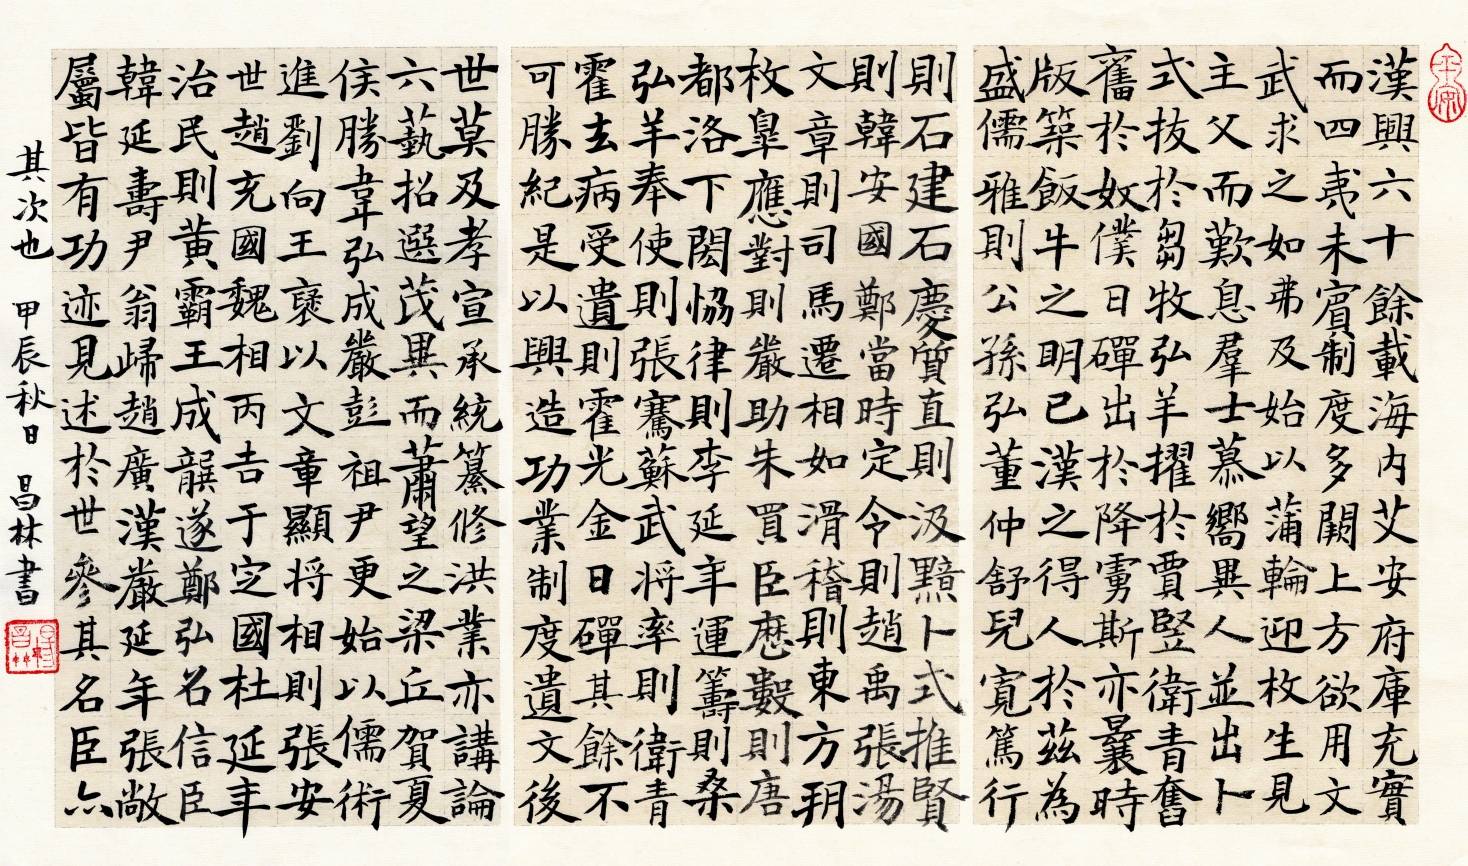 漢興六十餘載海内艾安府庫充實
而四夷未賓制度多闕上方欲用文
武求之如弗及始以蒲輪迎枚生見
主父而歎息羣士慕嚮異人並出卜
式拔於芻牧弘羊擢於賈竪衛青奮
舊於奴僕日磾出於降虜斯亦曩時
版築飯牛之明已漢之得人於茲為
盛儒雅則公孫弘董仲舒兒寬篤行
則石建石慶質直則汲黯卜式推賢
則韓安國鄭當時定令則趙禹張湯
文章則司馬遷相如滑稽則東方朔
枚臯應對則嚴助朱買臣歷數則唐
都洛下閎恊律則李延年運籌則桑
弘羊奉使則張騫蘇武將率則衛青
霍去病受遺則霍光金日磾其餘不
可勝紀是以興造功業制度遺文後
世莫及孝宣承統纂修洪業亦講論
六藝招選茂異而蕭望之梁丘賀夏
侯勝韋弘成嚴彭祖尹更始以儒術
進劉向王襃以文章顯將相則張安
世趙充國魏相丙吉于定國杜延年
治民則黃霸王成龔遂鄭弘名信臣
韓延壽尹翁歸趙廣漢嚴延年張敞
屬皆有功迹見述於世參其名臣亦
其次也 甲辰秋日 昌林書
平安